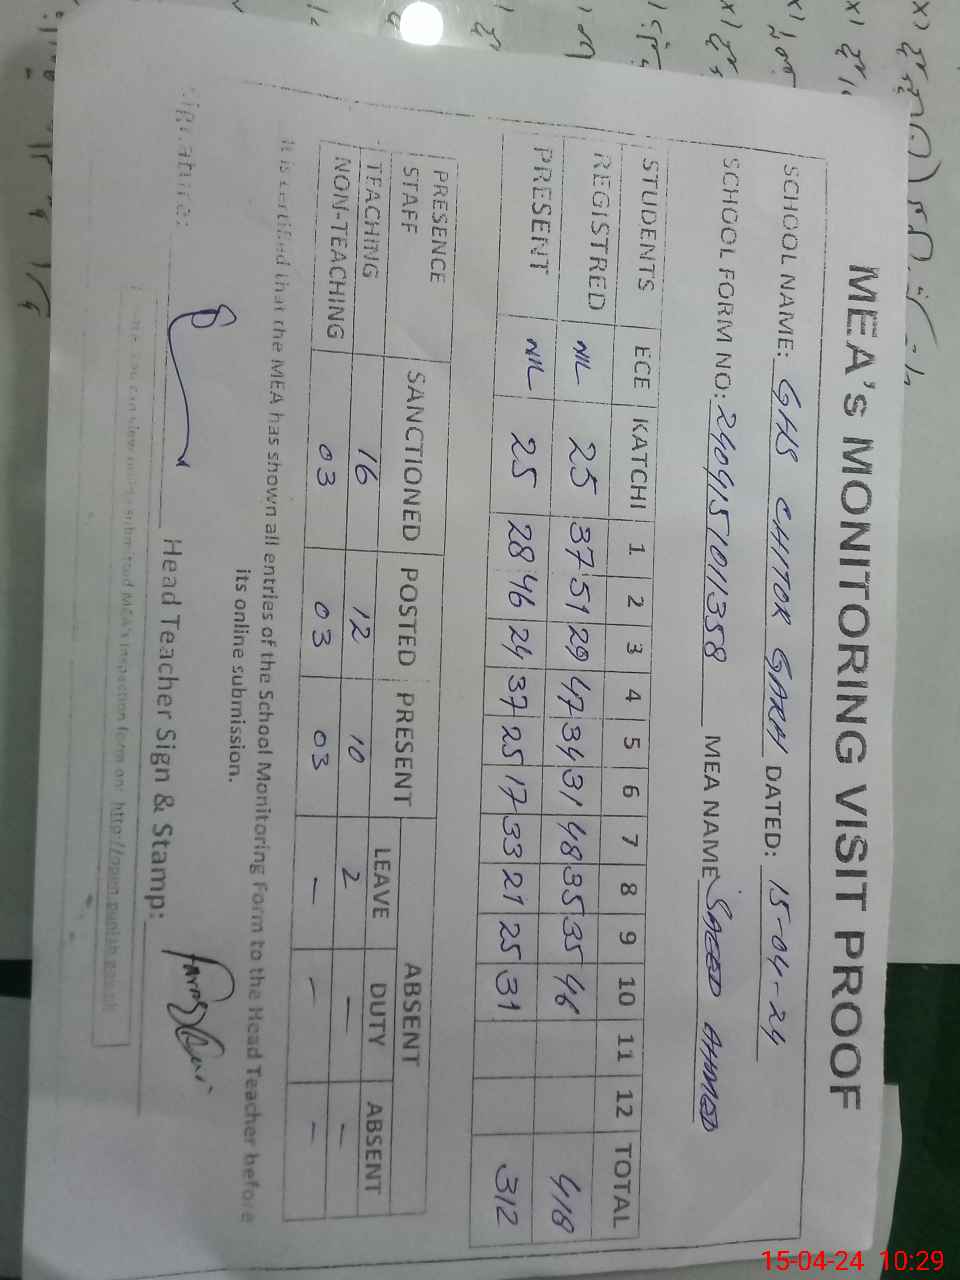 MEA's MONITORING VISIT PROOF
SCHOOL NAME: GHS CHITOR GARH DATED: 15-04-24
SCHOOL FORM NO: 2404151011358 MEA NAME SAEED AHMED
STUDENTS ECE KATCHI 1 2 3 4 5 6 7 8 9 10 11 12 TOTAL
REGISTRED NIL 25 37 51 29 47 34 31 48 35 35 46 418
PRESENT NIL 25 28 46 24 37 25 17 33 21 25 31 312
PRESENCE STAFF SANCTIONED POSTED PRESENT ABSENT
LEAVE DUTY ABSENT
TEACHING 16 12 10 2 — —
NON-TEACHING 03 03 03 — — —
It is certified that the MEA has shown all entries of the School Monitoring Form to the Head Teacher before
its online submission.
Signature: Head Teacher Sign & Stamp:
you can view submitted MEA's inspection form on: http://open.punjab.gov.pk
15-04-24 10:29